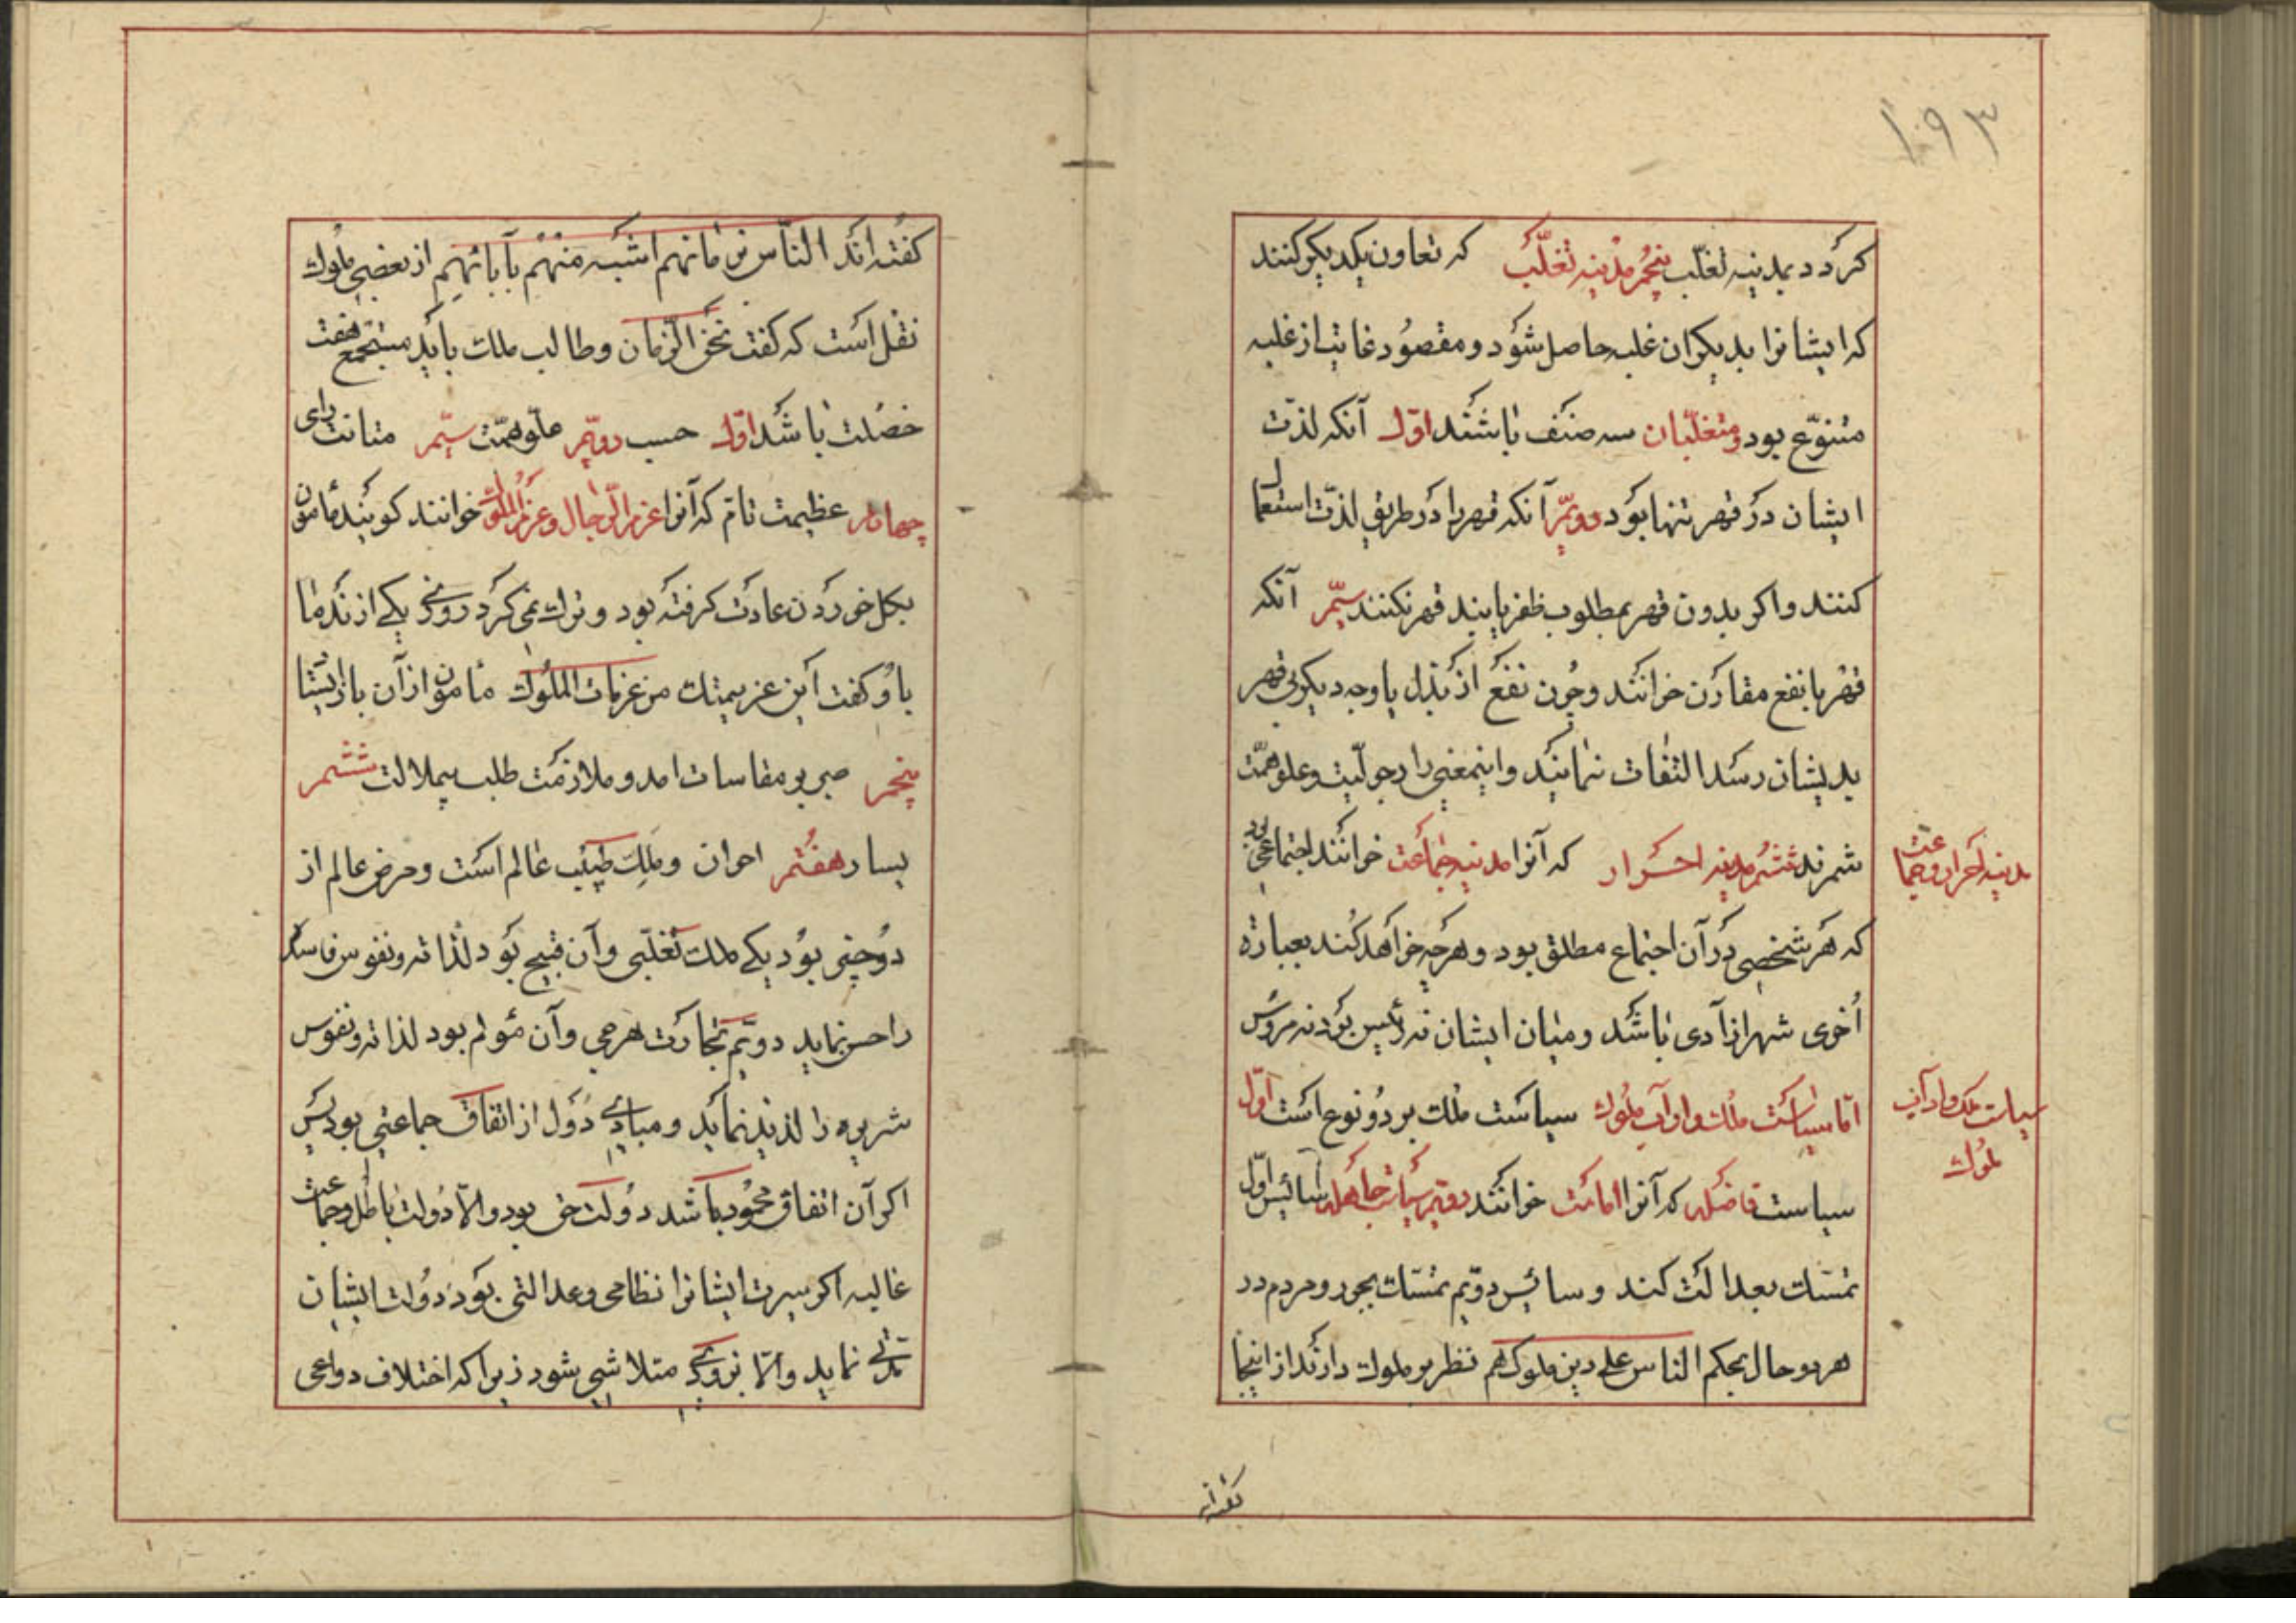 ۱۰۹۳
کردد بمدینه تغلّب پنجم مدینه تغلّب که تعاون یکدیکر کنند
که ایشانرا بدیکران غلبه حاصل شود و مقصود غایت از غلبه
متنوّع بود و متغلّبان سه صنف باشند اوّل آنکه لذّت
ایشان در قهر تنها بود دویّم آنکه قهر را در طریق لذّت استعمال
کنند و اکر بدون قهر بمطلوب ظفر یابند قهر نکنند سیّم آنکه
قهر با نفع مقارن خوانند و چون نفع از بذل یا وجه دیکر بی قهر
بدیشان رسد التفات ننمایند و اینمعنی را رجولیّت و علو همّت
شمرند ششم مدینه احرار که آنرا مدینه جماعت خوانند اجتماعی بود
مدینه احرار و جماعت
که هر شخصی در آن اجتماع مطلق بود و هرچه خواهد کند بعبارة
اُخری شهر ازادی باشد و میان ایشان نه رئیس بود نه مرؤس
امّا سیاست ملک و اداب ملوک سیاست ملک بر دو نوع است اوّل
سیاست ملک و اداب
ملوک
سیاست فاضله که آنرا امامت خوانند دویّم سیاست جاهله سائیس اوّل
تمسّک بعدالت کند و سائیس دوّیم تمسّک بجور و مردم در
هر دو حال بحکم الناس علی دین ملوکهم نظر بر ملوک دارند از اینجا
کفته اند
کفته اند النّاس بزمانهم اشبه منهم بآبائهم از بعضی ملوک
نقل است که کفت نحن الزّمان و طالب ملک باید مستجمع هفت
خصلت باشد اوّل حسب دویّم علّو همّت سیّم متانت رای
چهارم عظیمت تامّ که آنرا عزم الرّجال و عزم الملوک خوانند کویند مأمون
بکل خوردن عادت کرفته بود و ترک نمی کرد روزی یکی از ندما
باو کفت این عزیمتک من عزمات الملوک مأمون از آن باز ایستاد
پنجم صبر بر مقاسات امد و ملازمت طلب بیملالت ششم
یسار هفتم اعوان و ملک طبیب عالم است و مرض عالم از
دو چیز بود یکی ملک تغلّبی و آن قبیح بود لذاته و نفوس فاسد
را حسن نماید دوّیم تجارت هرجی و آن مؤلم بود لذاته و نفوس
شریره را لذیذ نماید و مبادی دول از اتفاق جماعتی بود پس
اکر آن اتفاق محمود باشد دولت حق بود و الّا دولت باطل و جماعت
غالبه اکر سیرت ایشانرا نظامی و عدالتی بود دولت ایشان
مدّتی نماید و الّا بزودی متلاشی شود زیرا که اختلاف دواعی